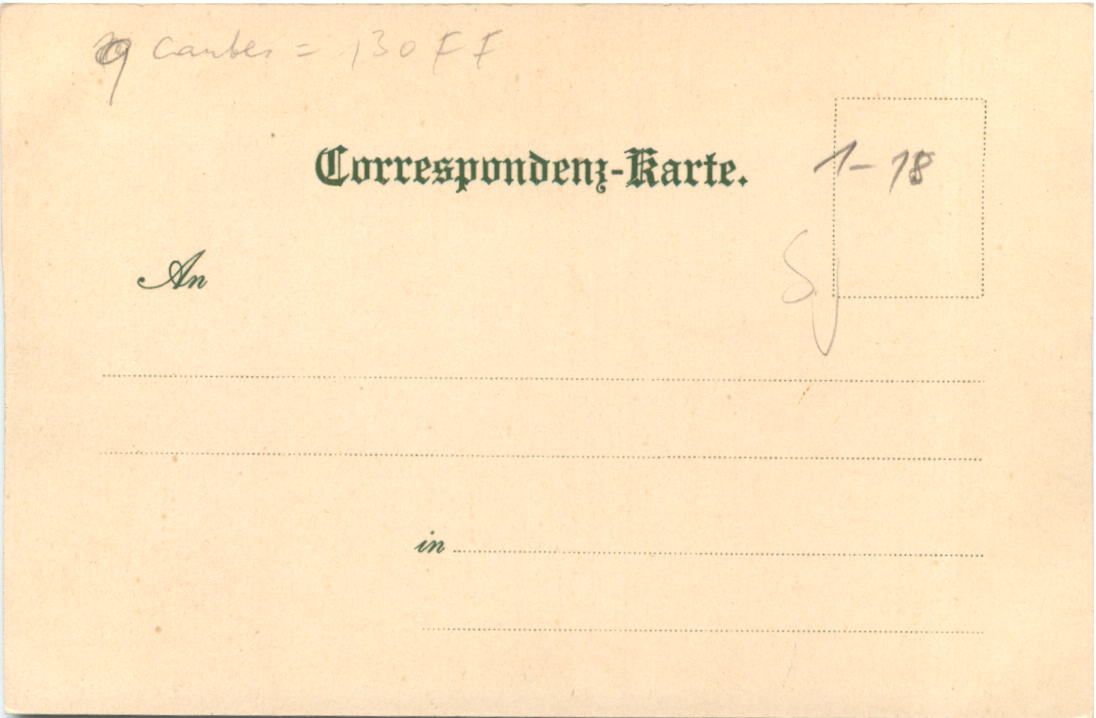 9 cartes = 130 FF
Correspondenz-Karte.
1-18
An
in